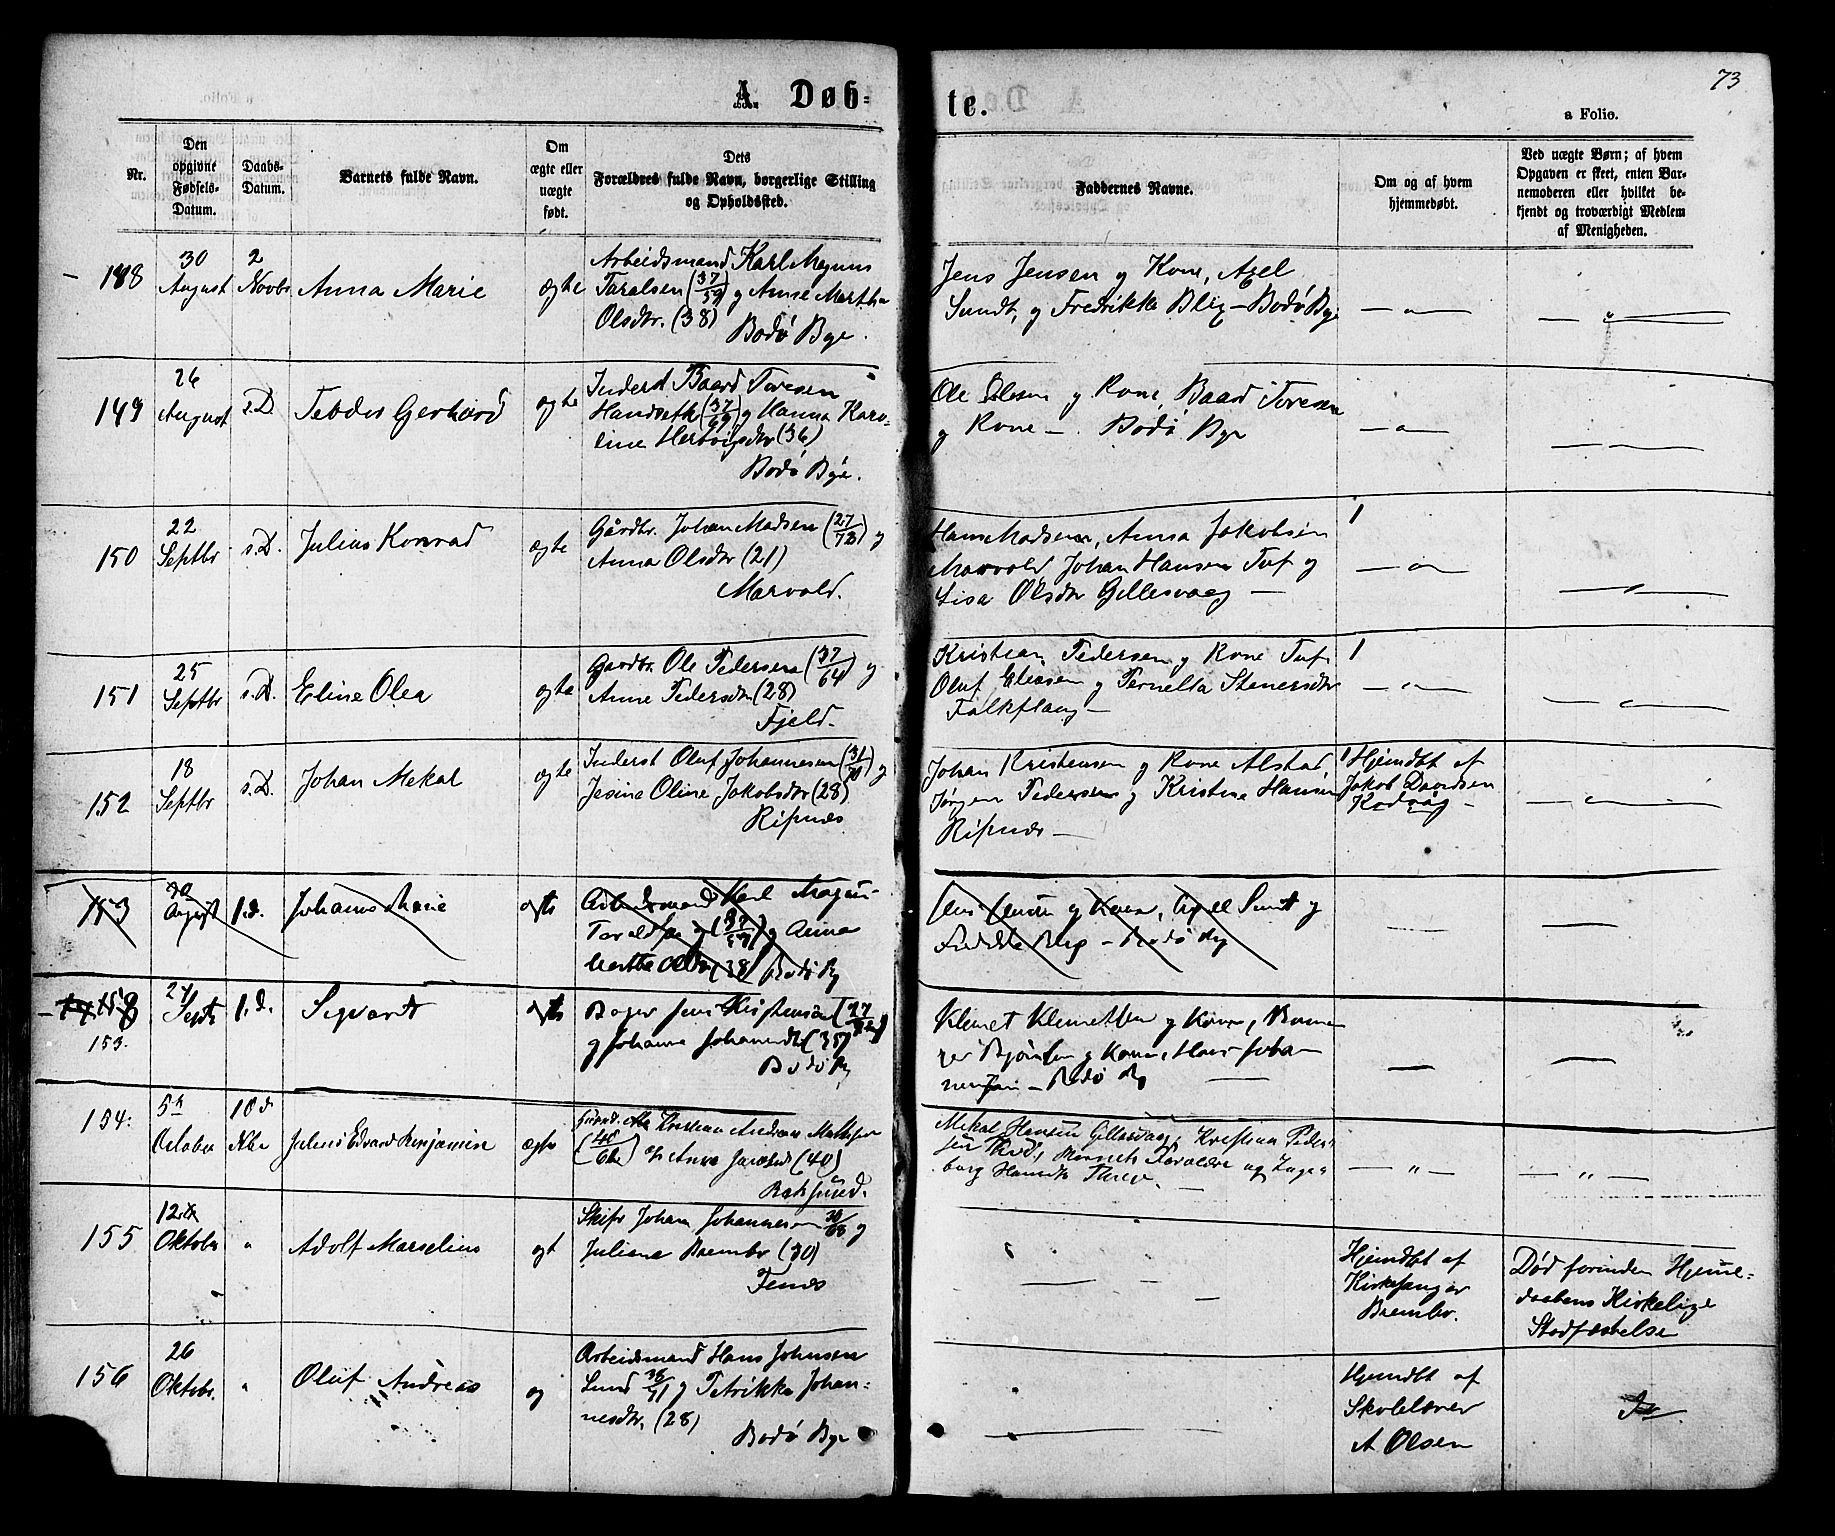 73
A. Døb-
te.
a Folio.
Nr.
Den opgivne Fødsels-Datum.
Daabs-Datum.
Barnets fulde Navn.
Om ægte eller uægte født.
Dets Forældres fulde Navn, borgerlige Stilling og Opholdssted.
Faddernes Navne.
Om og af hvem hjemmedøbt.
Ved uægte Børn; af hvem Opgaven er skeet, enten Barnemoderen eller hvilket bekjendt og troværdigt Medlem af Menigheden.
148
30 August
2 Novbr
Anna Marie
ægte
Arbeidsmand Karl Magnus
Taralsen (37/59) og Anne Martha
Olsdtr. (38)
Bodø Bye.
Jens Jensen og Kone, Axel
Sundt, og Fredrikke Blix – Bodø Bye
149
26 August
s.D.
Teodor Gerhard
ægte
Inderst Baard Toresen
og Hanna Karo-
line
(36)
Bodø Bye.
Ole Olesen og Kone, Baard Toresen
og Kone – Bodø Bye
150
22 Septbr
s.D.
Julius Konrad
ægte
Gårdbr. Johan Madsen (27/73) og
Anna Olsdtr (21)
Marvold.
Hans Madsen, Anna Jakobsen
Marvold, Johan Hansen Tuf og
Lisa Olsdtr Gillesvaag –
151
25 Septbr
s.D.
Eline Olea
ægte
Gardbr. Ole Pedersen (37/64) og
Anne Pedersdtr (28)
Fjeld.
Kristian Pedersen og Kone Tuf
Oluf Eliasen og Pernella Stenersdtr
Falkflaug –
152
18 Septbr
s.D.
Johan Mekal
ægte
Inderst Oluf Johannesen (31/70) og
Jesine Oline Jakobsdtr (28)
Ripnæs
Johan Kristensen og Kone Alstad
Jørgen Pedersen og Kristine Hansen
Ripnæs –
Hjemdbt af
Jakob Davidsen
Kodvåg –
153
30 August
1.d.
Johanna Marie
ægte
Arbeidsmand Karl Magnus
Taraldsen (37/59) og Anna
Martha Olsdtr (38) Bodø By
Jens Jensen og Kone, Axel Sundt og
Fredrikke Blix – Bodø By
158
153.
27 Septr
1.d.
Sigvard
ægte
Bager Jens Kristensen
og Johanna Johannesdtr (35)
Bodø By
Klemet Klemetsen og Kone,
og Kone, Hans Johan-
nesen – Bodø By
154.
5te October
10de Nbr
Julius Edvard Benjamin
ægte
Kristian Andreas Mathisen
og Anna (40)
Mekal Hansen Gillesvaag, Kristian Peder-
sen
Barnets Forældre og Inge-
borg Hansdtr
155
12te Oktober
Adolf Marselius
ægt
Skifr Johan Johannesen 30/68 og
Juliana Brembo (30)
Fenes
Hjemdbt af
Kirkesanger
Brembo.
Død forinden Hjeme-
daabens Kirkelige
Stadfæstelse
156
26 Oktobr.
Oluf Andreas
Arbeidsmand Hans Johnsen
Lund 36/71 og Petrikke Johan-
nesdtr. (28)
Bodø Bye
Hjemdbt af
Skolelærer
A Olsen
Do